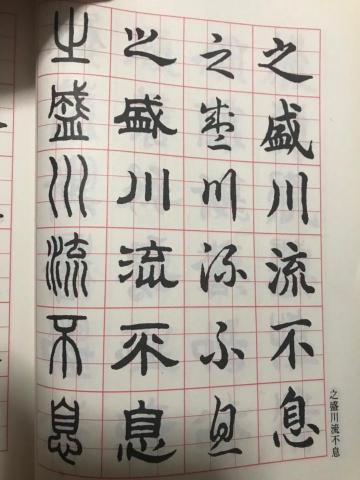 之盛川流不息
之盛川流不息
之盛川流不息
之盛川流不息
之盛川流不息